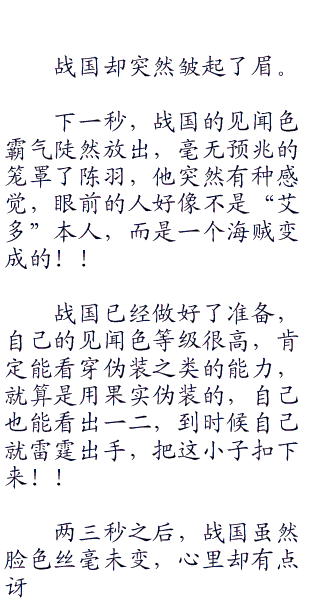 战国却突然皱起了眉。
下一秒，战国的见闻色
霸气陡然放出，毫无预兆的
笼罩了陈羽，他突然有种感
觉，眼前的人好像不是“艾
多”本人，而是一个海贼变
成的！！
战国已经做好了准备，
自己的见闻色等级很高，肯
定能看穿伪装之类的能力，
就算是用果实伪装的，自己
也能看出一二，到时候自己
就雷霆出手，把这小子扣下
来！！
两三秒之后，战国虽然
脸色丝毫未变，心里却有点
讶